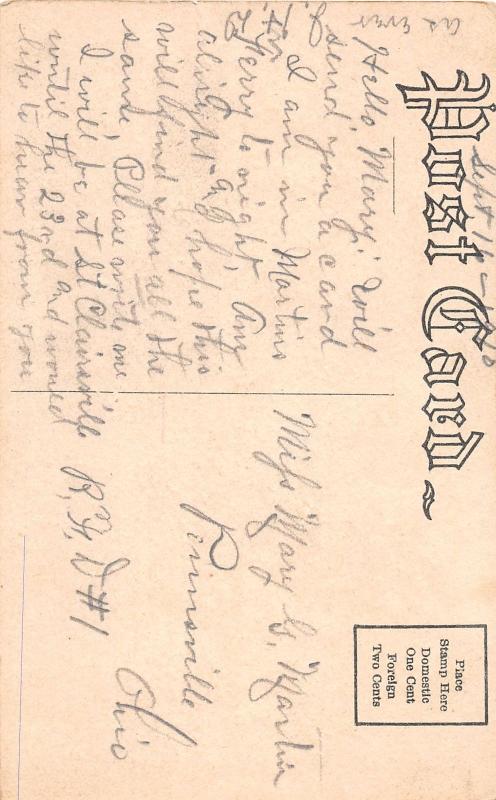 Post Card
Sept 16 - 10
Hello, Mary; Will
send you a card
I am in Martins
Ferry to night Am
alright - and hope this
will find you all the
same Please write me
I will be at St Clairsville R, F, D #1
until the 23rd and would
like to hear from you
as ever
Miss Mary G. Martin
Pennsville
Ohio
Place
Stamp Here
Domestic
One Cent
Foreign
Two Cents